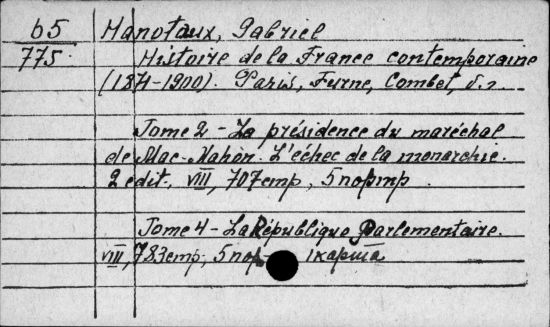 65 Hanotaux, Gabriel
775 Histoire de la France contemporaine
(1871-1900). Paris, Furne, Combet, s.a.
Tome 2 - La présidence du maréchal
de Mac-Mahon. L'échec de la monarchie.
2 edit., VIII, 707 стр, 5 портр.
Tome 4 - La République Parlementaire.
VIII, 783 стр, 5 пор 1 карта